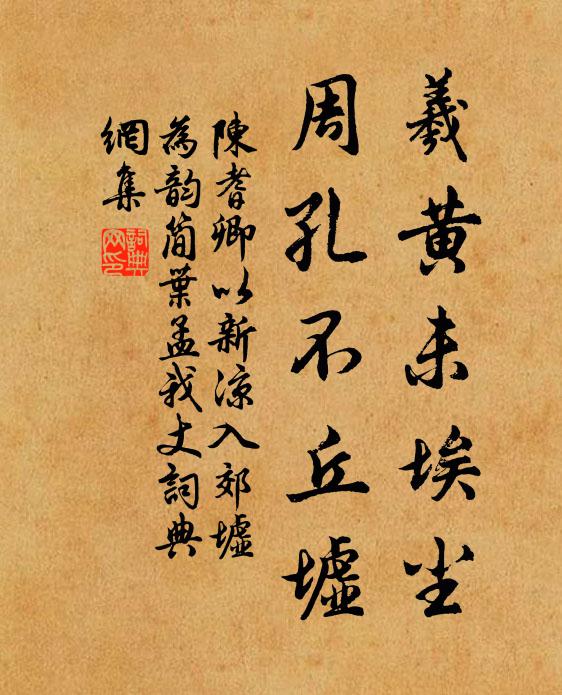 羲黄未埃尘
周孔不丘墟
陳耆卿以新凉入郊墟
為韵简葉孟我丈詞典
網集
詞典
网印